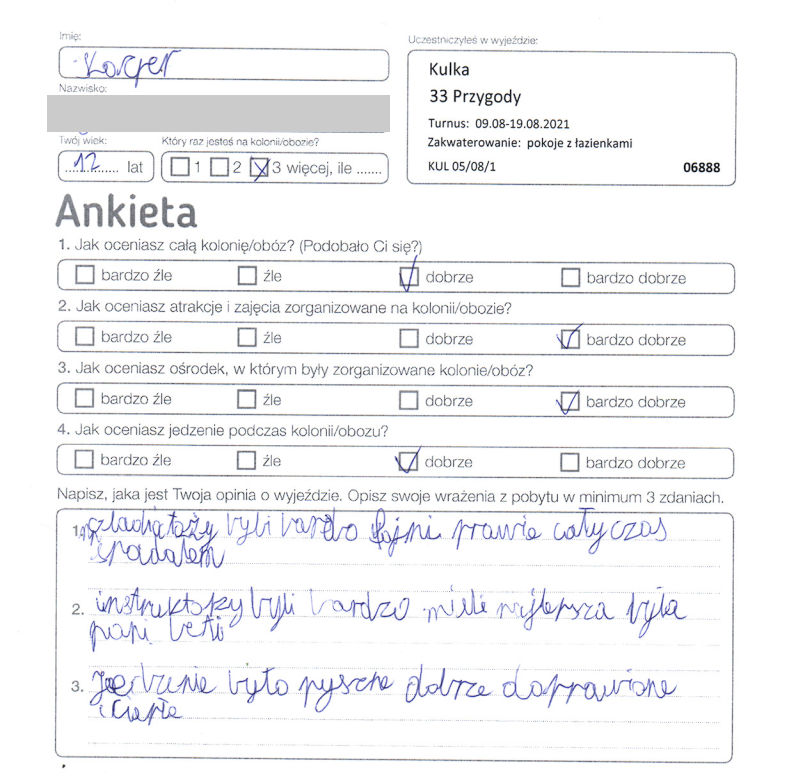 Imię:
Kacper
Nazwisko:
Twój wiek:
12 lat
Który raz jesteś na kolonii/obozie?
1 2 3 więcej, ile .......
Uczestniczyłeś w wyjeździe:
Kulka
33 Przygody
Turnus: 09.08-19.08.2021
Zakwaterowanie: pokoje z łazienkami
KUL 05/08/1 06888
Ankieta
1. Jak oceniasz całą kolonię/obóz? (Podobało Ci się?)
bardzo źle źle dobrze bardzo dobrze
2. Jak oceniasz atrakcje i zajęcia zorganizowane na kolonii/obozie?
bardzo źle źle dobrze bardzo dobrze
3. Jak oceniasz ośrodek, w którym były zorganizowane kolonie/obóz?
bardzo źle źle dobrze bardzo dobrze
4. Jak oceniasz jedzenie podczas kolonii/obozu?
bardzo źle źle dobrze bardzo dobrze
Napisz, jaka jest Twoja opinia o wyjeździe. Opisz swoje wrażenia z pobytu w minimum 3 zdaniach.
1. byli bardzo fajni prawie cały czas
spadałem
2. instruktoży byli bardzo mili najlepsza była
pani
3. jedzenie było pyszne dobrze doprawione
i ciepłe